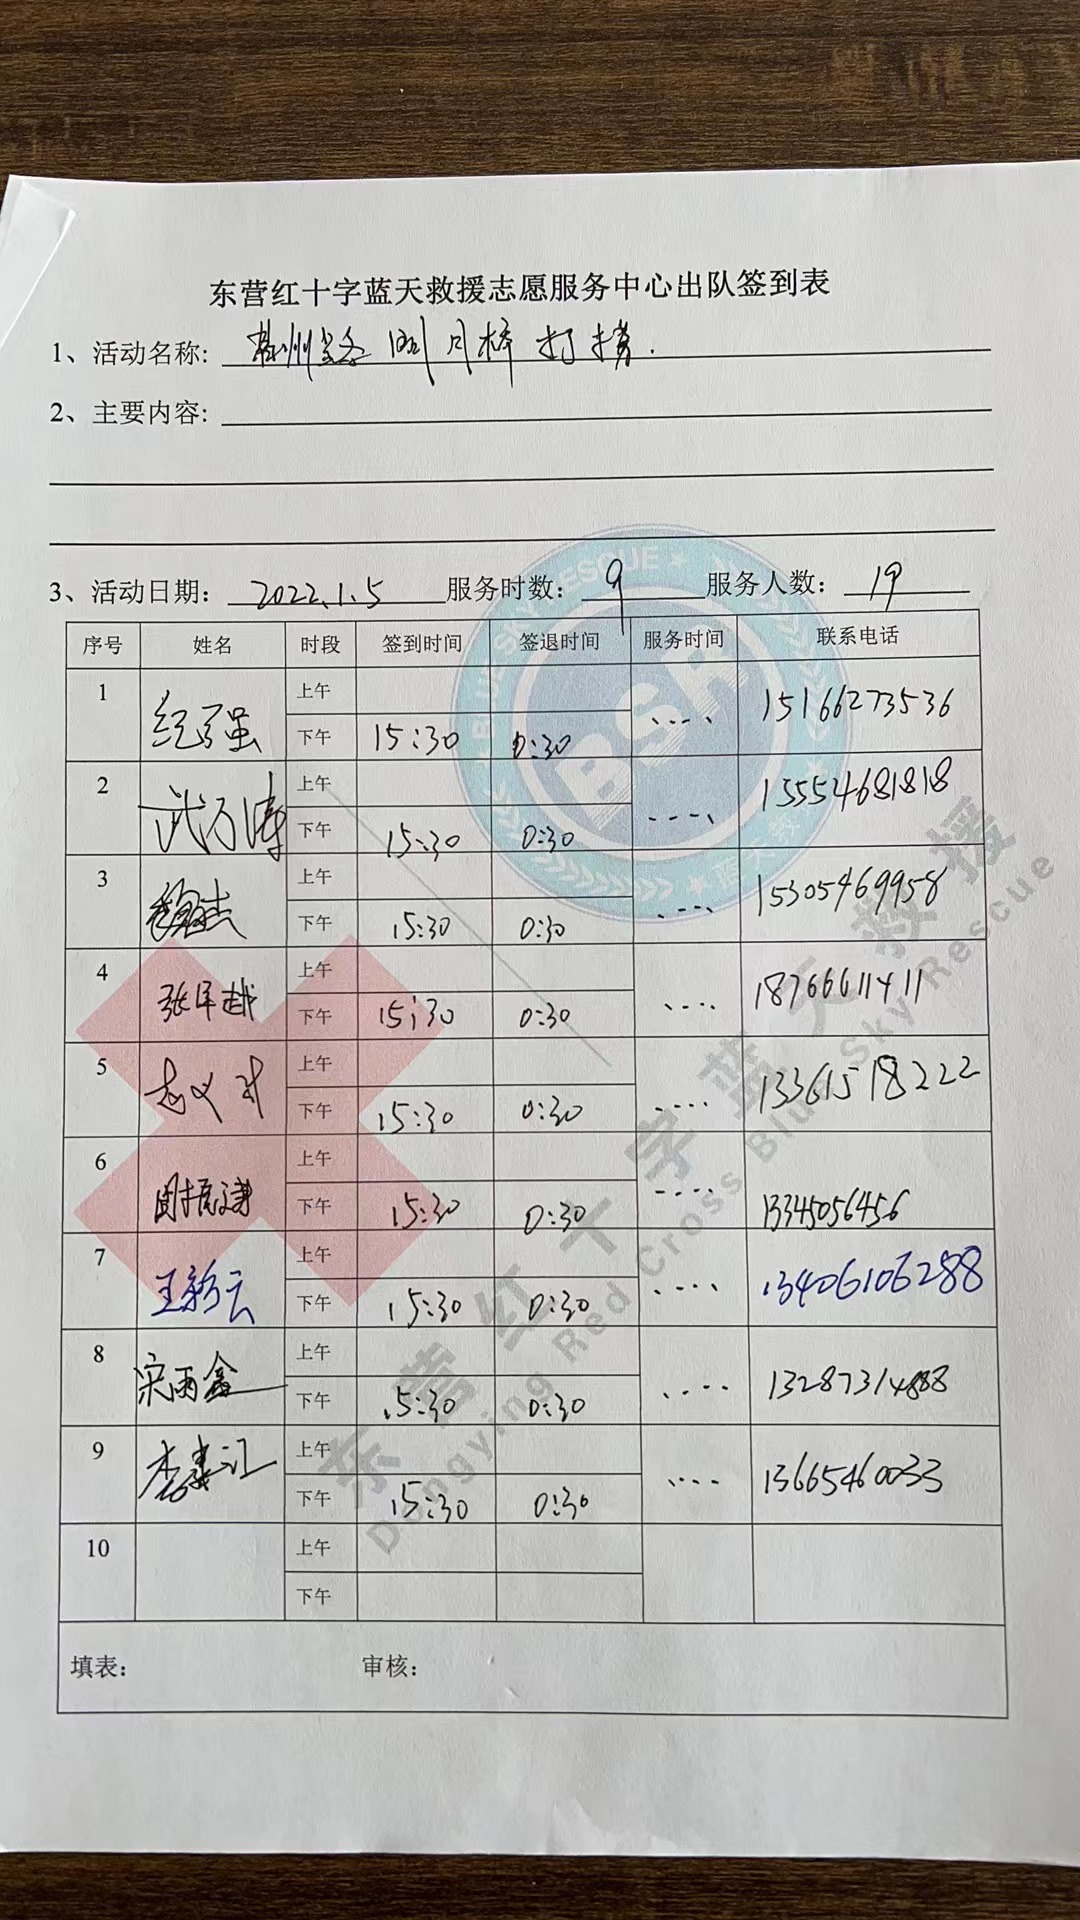 东营红十字蓝天救援志愿服务中心出队签到表
1、活动名称: 打捞.
2、主要内容:
3、活动日期: 2022.1.5 服务时数: 9 服务人数: 19
序号 姓名 时段 签到时间 签退时间 服务时间 联系电话
1 上午
下午 15:30 0:30 15166273536
2 武万涛 上午
下午 15:30 0:30 13554681818
3 上午
下午 15:30 0:30 15305469958
4 上午
下午 15:30 0:30 18766611411
5 上午
下午 15:30 0:30 13361518222
6 上午
下午 15:30 0:30 13345056456
7 王新云 上午
下午 15:30 0:30 13406106288
8 宋雨鑫 上午
下午 15:30 0:30 13287314888
9 上午
下午 15:30 0:30 13665460033
10 上午
下午
填表: 审核:
BLUE SKY RESCUE
BSR
东营红十字蓝天救援
Dongying Red Cross Blue Sky Rescue